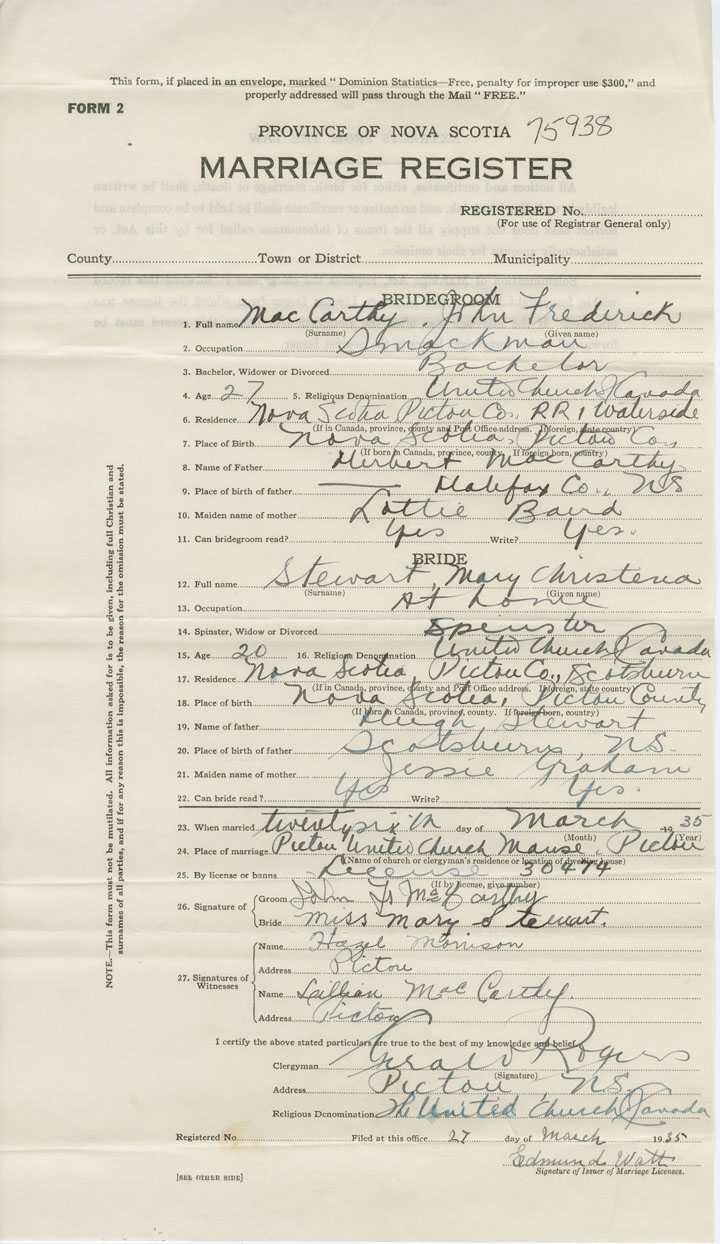 This form, if placed in an envelope, marked " Dominion Statistics—Free, penalty for improper use $300," and
properly addressed will pass through the Mail " FREE."
FORM 2
PROVINCE OF NOVA SCOTIA 75938
MARRIAGE REGISTER
REGISTERED No.
(For use of Registrar General only)
County Town or District Municipality
BRIDEGROOM
1. Full name Mac Carthy, John Frederick
(Surname) (Given name)
2. Occupation Smackman
3. Bachelor, Widower or Divorced Bachelor
4. Age 27 5. Religious Denomination United Church of Canada
6. Residence Nova Scotia Pictou Co., RR 1 Waterside
(If in Canada, province, county and Post Office address. If foreign, state country)
7. Place of Birth Nova Scotia, Pictou Co.,
(If born in Canada, province, county. If foreign born, country)
8. Name of Father Herbert Mac Carthy
9. Place of birth of father Halifax Co., NS
10. Maiden name of mother Lottie Baird
11. Can bridegroom read? Yes Write? Yes.
BRIDE
12. Full name Stewart, Mary Christena
(Surname) (Given name)
13. Occupation At home
14. Spinster, Widow or Divorced Spinster
15. Age 20 16. Religious Denomination United Church of Canada
17. Residence Nova Scotia, Pictou Co., Scotsburn
(If in Canada, province, county and Post Office address. If foreign, state country)
18. Place of birth Nova Scotia, Pictou County,
(If born in Canada, province, county. If foreign-born, country)
19. Name of father Hugh Stewart
20. Place of birth of father Scotsburn, NS.
21. Maiden name of mother Jessie Graham
22. Can bride read? Yes Write? Yes.
23. When married twentysixth day of March 1935
(Month) (Year)
24. Place of marriage Pictou United Church Manse, Pictou
(Name of church or clergyman's residence or location of dwelling house)
25. By license or banns License 30474
(If by license, give number)
26. Signature of Groom John Fr McCarthy
Bride Miss Mary Stewart.
27. Signatures of Witnesses Name Hazel Morrison
Address Pictou
Name Lillian Mac Carthy.
Address Pictou
I certify the above stated particulars are true to the best of my knowledge and belief
Clergyman Gerald Rogers
(Signature)
Address Pictou, NS.
Religious Denomination The United Church of Canada
Registered No. Filed at this office 27 day of March 1935
Edmund Watt
Signature of Issuer of Marriage Licenses.
[SEE OTHER SIDE]
NOTE.—This form must not be mutilated. All information asked for is to be given, including full Christian and
surnames of all parties, and if for any reason this is impossible, the reason for the omission must be stated.